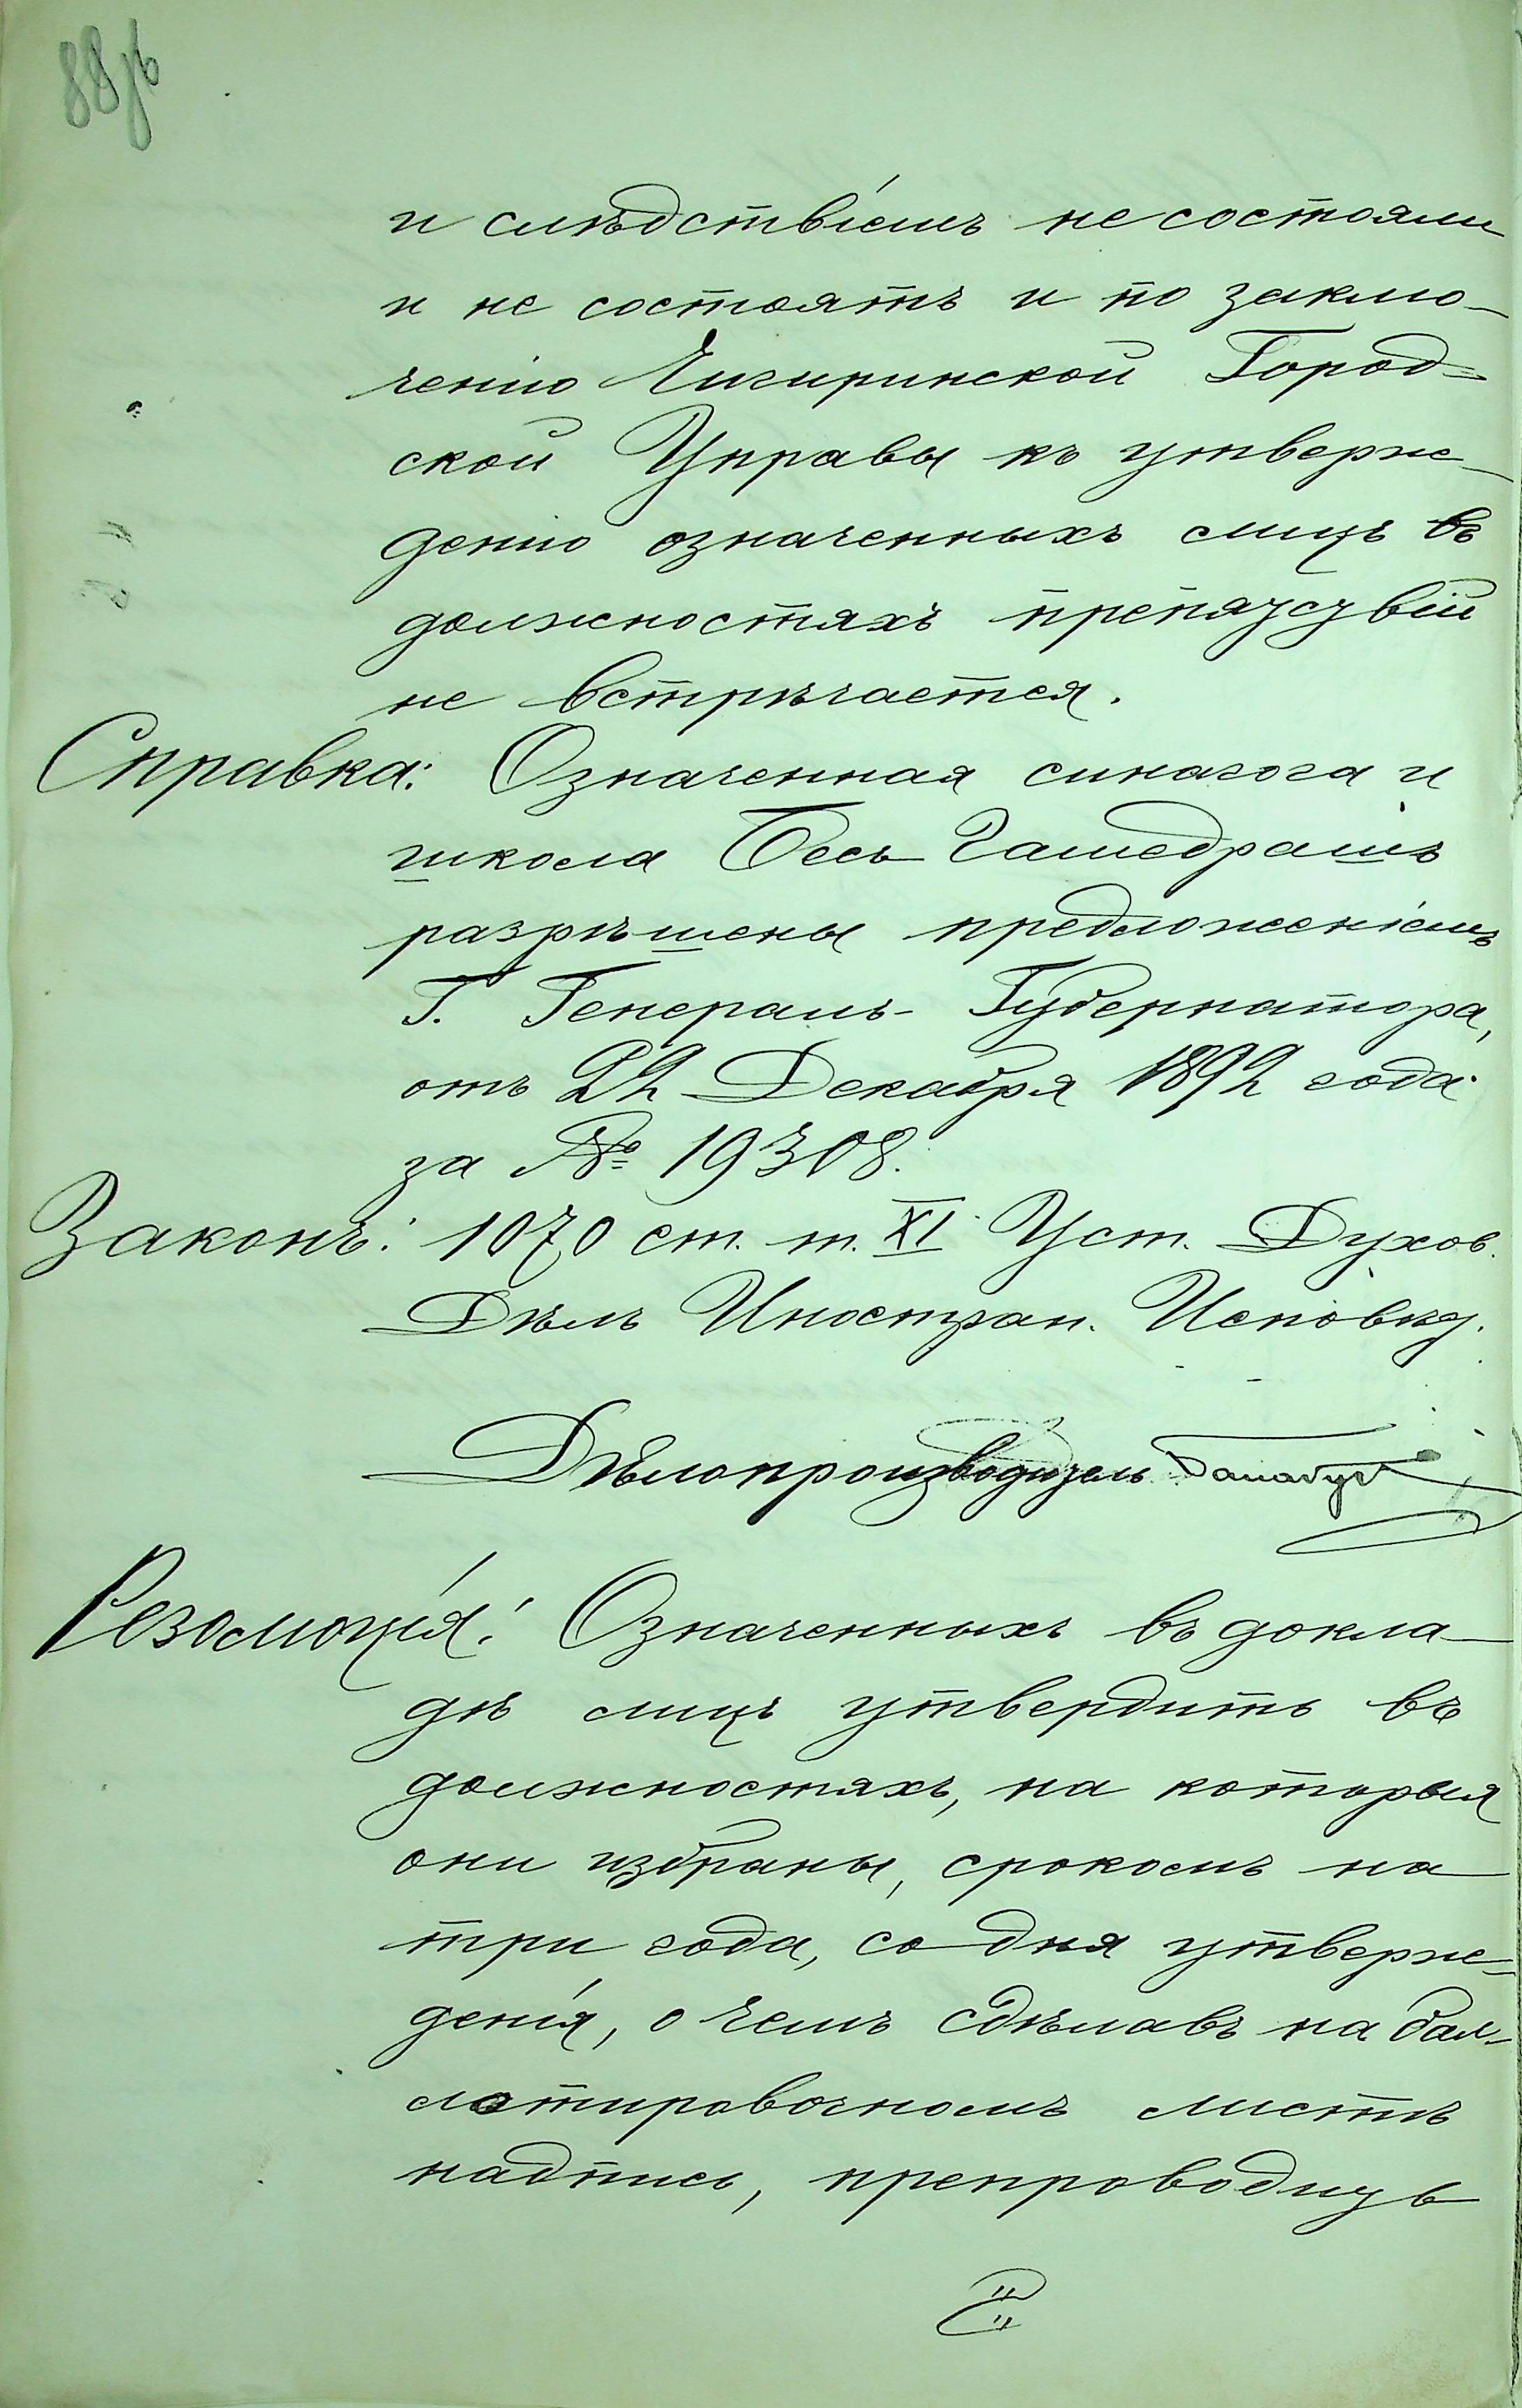 и слѣдствіемъ не состояли
и не состоятъ и по заклю-
ченію Чигиринской Город-
ской Управы къ утверж-
денію означенныхъ лицъ въ
должностяхъ препятствій
не встрѣчается.
Справка: Означенная синагога и
школа Бесъ Гамедрашъ
разрѣшены предложеніемъ
Г. Генералъ-Губернатора,
отъ 22 Декабря 1892 года
за № 19308.
Законъ: 1070 ст. т. XI Уст. Духов.
Дѣлъ Иностран. Исповѣд.
Дѣлопроизводитель
Резолюція: Означенныхъ въ докла-
дѣ лицъ утвердить въ
должностяхъ, на которыя
они избраны, срокомъ на
три года, со дня утверж-
денія, о чемъ сдѣлавъ на бал-
лотировочномъ листѣ
надпись, препроводить